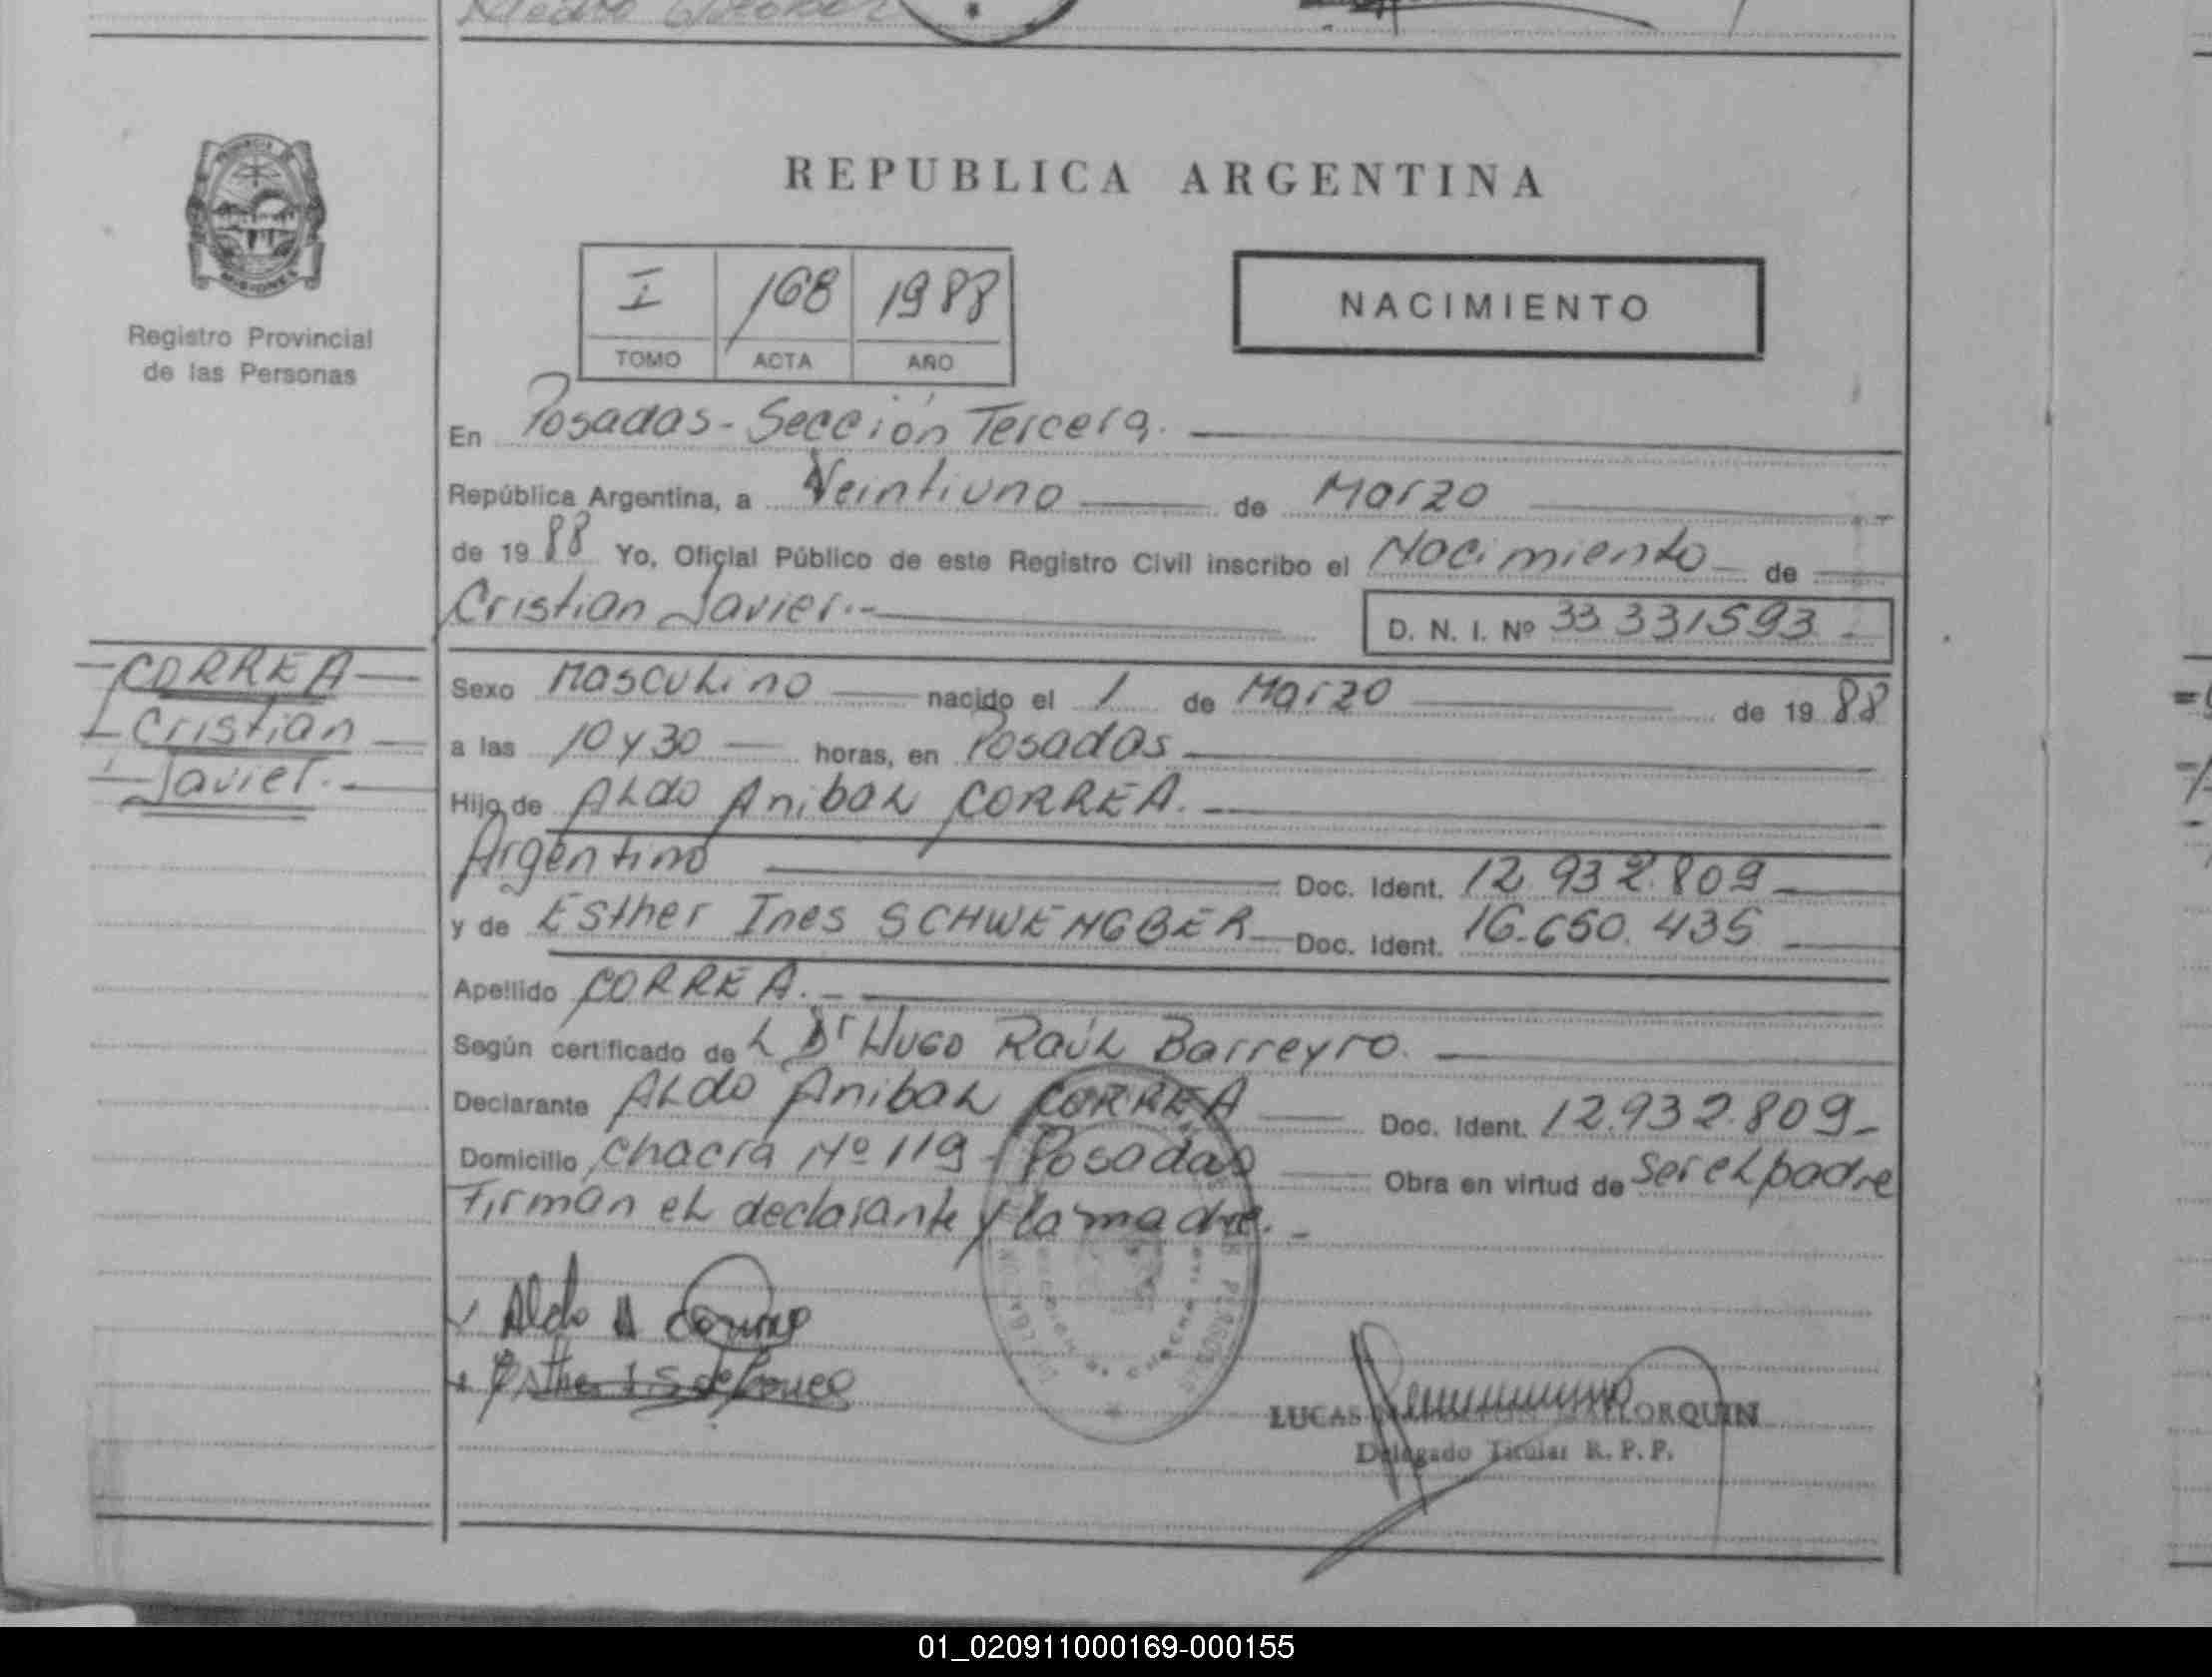 REPUBLICA ARGENTINA
Registro Provincial
de las Personas
I 168 1988
TOMO ACTA AÑO
NACIMIENTO
En Posadas - Sección Tercera.
República Argentina, a Veintiuno de Marzo
de 19 88 Yo, Oficial Público de este Registro Civil inscribo el Nacimiento de
Cristian Javier.- D. N. I. Nº 33.331593
CORREA
Cristian
Javier.
Sexo Masculino nacido el 1 de Marzo de 19 88
a las 10 y 30 horas, en Posadas
Hijo de Aldo Anibal CORREA.
Argentino Doc. Ident. 12.932.809
y de Esther Ines SCHWENGBER Doc. Ident. 16.650.435
Apellido CORREA.-
Según certificado de l Dr Hugo Raúl Barreyro.
Declarante Aldo Anibal CORREA Doc. Ident. 12.932.809-
Domicilio chacra Nº 119 - Posadas Obra en virtud de ser el padre
Firman el declarante y la madre.-
Aldo A Correa
Esther I S de Correa
LUCAS MALLORQUIN
Delegado Titular R. P. P.
01_020911000169-000155